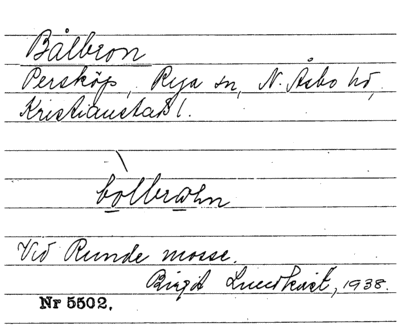 Bålbron
Persköp, Rya sn, N. Åsbo hd,
Kristianstads l.
bòlbrωhn
Vid Runde mosse.
Birgit Lundkvist, 1938.
Nr 5502.